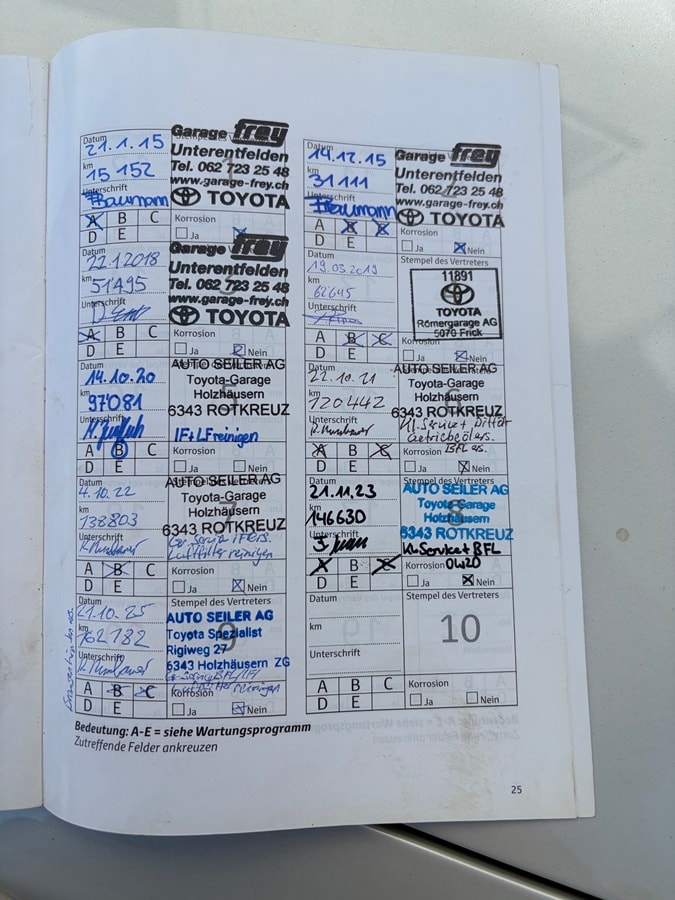 Datum
21.1.15
km
15 152
Unterschrift
Baumann
Garage frey
Unterentfelden
Tel. 062 723 25 48
www.garage-frey.ch
TOYOTA
A B C
D E
Korrosion
Ja
Datum
14.12.15
km
31111
Unterschrift
Baumann
Garage frey
Unterentfelden
Tel. 062 723 25 48
www.garage-frey.ch
TOYOTA
A B C
D E
Korrosion
Ja Nein
Datum
22.1.2018
km
51495
Unterschrift
Garage frey
Unterentfelden
Tel. 062 723 25 48
www.garage-frey.ch
TOYOTA
A B C
D E
Korrosion
Ja Nein
19.03.2019
km
62645
Unterschrift
Stempel des Vertreters
11891
TOYOTA
Römergarage AG
5070 Frick
A B C
D E
Korrosion
Ja Nein
Datum
14.10.20
km
97081
Unterschrift
5
AUTO SEILER AG
Toyota-Garage
Holzhäusern
6343 ROTKREUZ
IF+LF reinigen
A B C
D E
Korrosion
Ja Nein
Datum
22.10.21
km
120442
Unterschrift
6
AUTO SEILER AG
Toyota-Garage
Holzhäusern
6343 ROTKREUZ
Kl. Service +
Getriebeölers.
BFL ers.
A B C
D E
Korrosion
Ja Nein
Datum
4.10.22
km
138803
Unterschrift
7
AUTO SEILER AG
Toyota-Garage
Holzhäusern
6343 ROTKREUZ
Luftfilter reinigen
A B C
D E
Korrosion
Ja Nein
Datum
21.11.23
km
146630
Unterschrift
Stempel des Vertreters
8
AUTO SEILER AG
Toyota-Garage
Holzhäusern
6343 ROTKREUZ
Kl. Service + BFL
0W20
A B C
D E
Korrosion
Ja Nein
Datum
21.10.25
km
162782
Unterschrift
Stempel des Vertreters
9
AUTO SEILER AG
Toyota Spezialist
Rigiweg 27
6343 Holzhäusern ZG
A B C
D E
Korrosion
Ja Nein
Datum
km
Unterschrift
Stempel des Vertreters
10
A B C
D E
Korrosion
Ja Nein
Bedeutung: A-E = siehe Wartungsprogramm
Zutreffende Felder ankreuzen
25